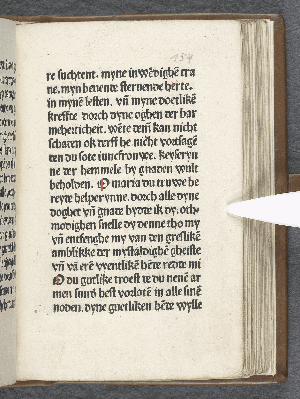 154
re suchtent. myne inwēdighē tra
ne. myn beuende steruende herte.
in mynē lesten. vn̄ myne doetlikē
kreffte dorch dyne oghen der bar
mherticheit. wēte dem̄ kan nicht
schaten ok derff he nicht vortsagē
den du sote iuncfrouwe. keyseryn
ne der hemmele by gnaden wult
beholden. O maria du truwe be
reyde helperynne. dorch alle dyne
doghet vn̄ gnade bydde ik dy. och
modighen snelle dy denne tho my
vn̄ entfenghe my van den greslikē
anblikke der mystaldighē gheiste
vn̄ va erē vyentlikē hēde redde mi
O du gutlike troest te du nenē ar
men sund hest vorlatē in alle sinē
noden. dyne guetliken hēde wylle